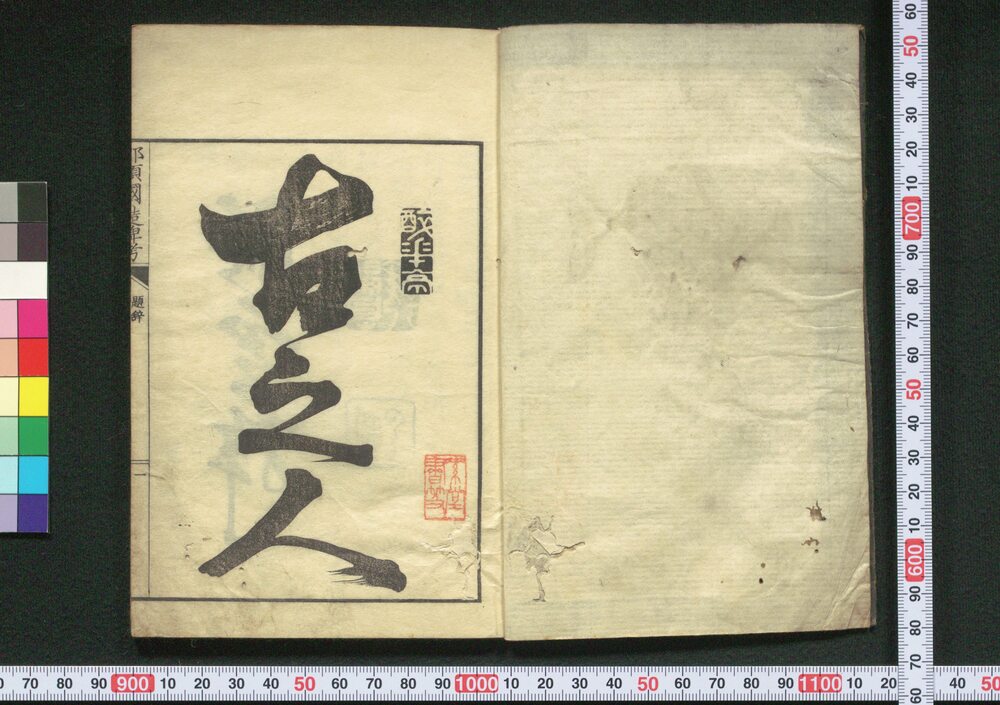 酔半亭
古之人
那須國造碑考
題辞
一
60 50 40 30 20 10 700 90 80 70 60 50 40 30 20 10 600 90 80 70 60
70 80 90 900 10 20 30 40 50 60 70 80 90 1000 10 20 30 40 50 60 70 80 90 1100 10 20 40 50